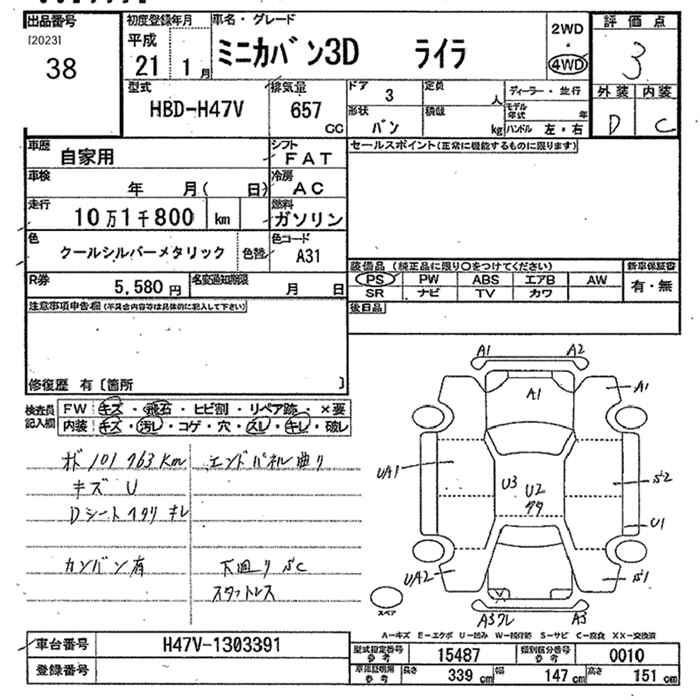 出品番号
[2023]
38
初度登録年月
平成
21 1 月
車名・グレード
ミニカバン3D ライラ
2WD
・
4WD
評価点
3
外装 内装
D C
型式
HBD-H47V
排気量
657
CC
ドア
3
形状
バン
定員
人
積載
kg
ディーラー・並行
モデル年式 年
ハンドル 左・右
車歴
自家用
シフト
FAT
車検
年 月( 日)
冷房
AC
走行
10万1千800 km
燃料
ガソリン
色
クールシルバーメタリック
色替
色コード
A31
R券
5,580 円
名変通知期限
月 日
セールスポイント(正常に機能するものに限ります)
装備品 (純正品に限り○をつけてください)
PS PW ABS エアB AW
SR ナビ TV カワ
新車保証書
有・無
後日品
注意事項申告欄(不具合内容等は具体的に記入して下さい)
修復歴 有〔箇所 〕
検査員記入欄
FW キズ・飛石・ヒビ割・リペア跡・×要
内装 キズ・汚レ・コゲ・穴・スレ・キレ・破レ
101763Km
エンドパネル曲り
キズ U
Dシートヘタリ キレ
カンバン有
下廻り SC
スタットレス
A1 A2
A1
A1
UA1
U3
U2
S2
U1
UA2
S1
A3
スペア
A-キズ E-エクボ U-凹み W-補修跡 S-サビ C-腐食 XX-交換済
車台番号
H47V-1303391
登録番号
型式指定番号 参考
15487
類別区分番号 参考
0010
車庫証明用 参考
長さ 339 cm 幅 147 cm 高さ 151 cm